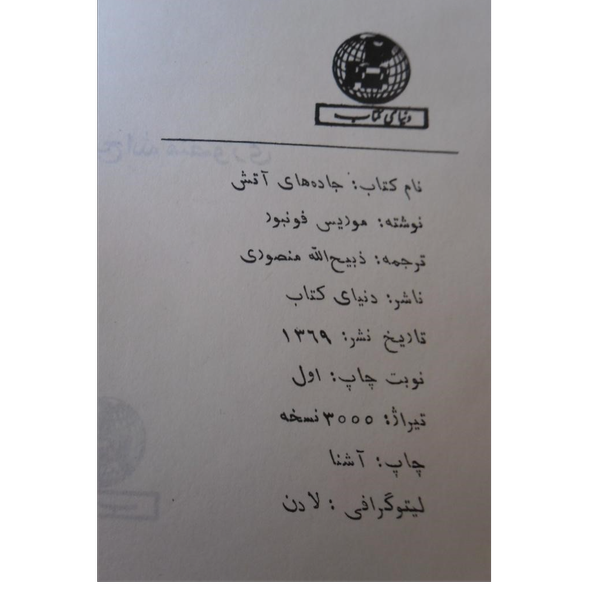 دنیای کتاب
نام کتاب: جاده‌های آتش
نوشته: موریس فونبور
ترجمه: ذبیح‌الله منصوری
ناشر: دنیای کتاب
تاریخ نشر: ۱۳۶۹
نوبت چاپ: اول
تیراژ: ۳۰۰۰ نسخه
چاپ: آشنا
لیتوگرافی: لادن